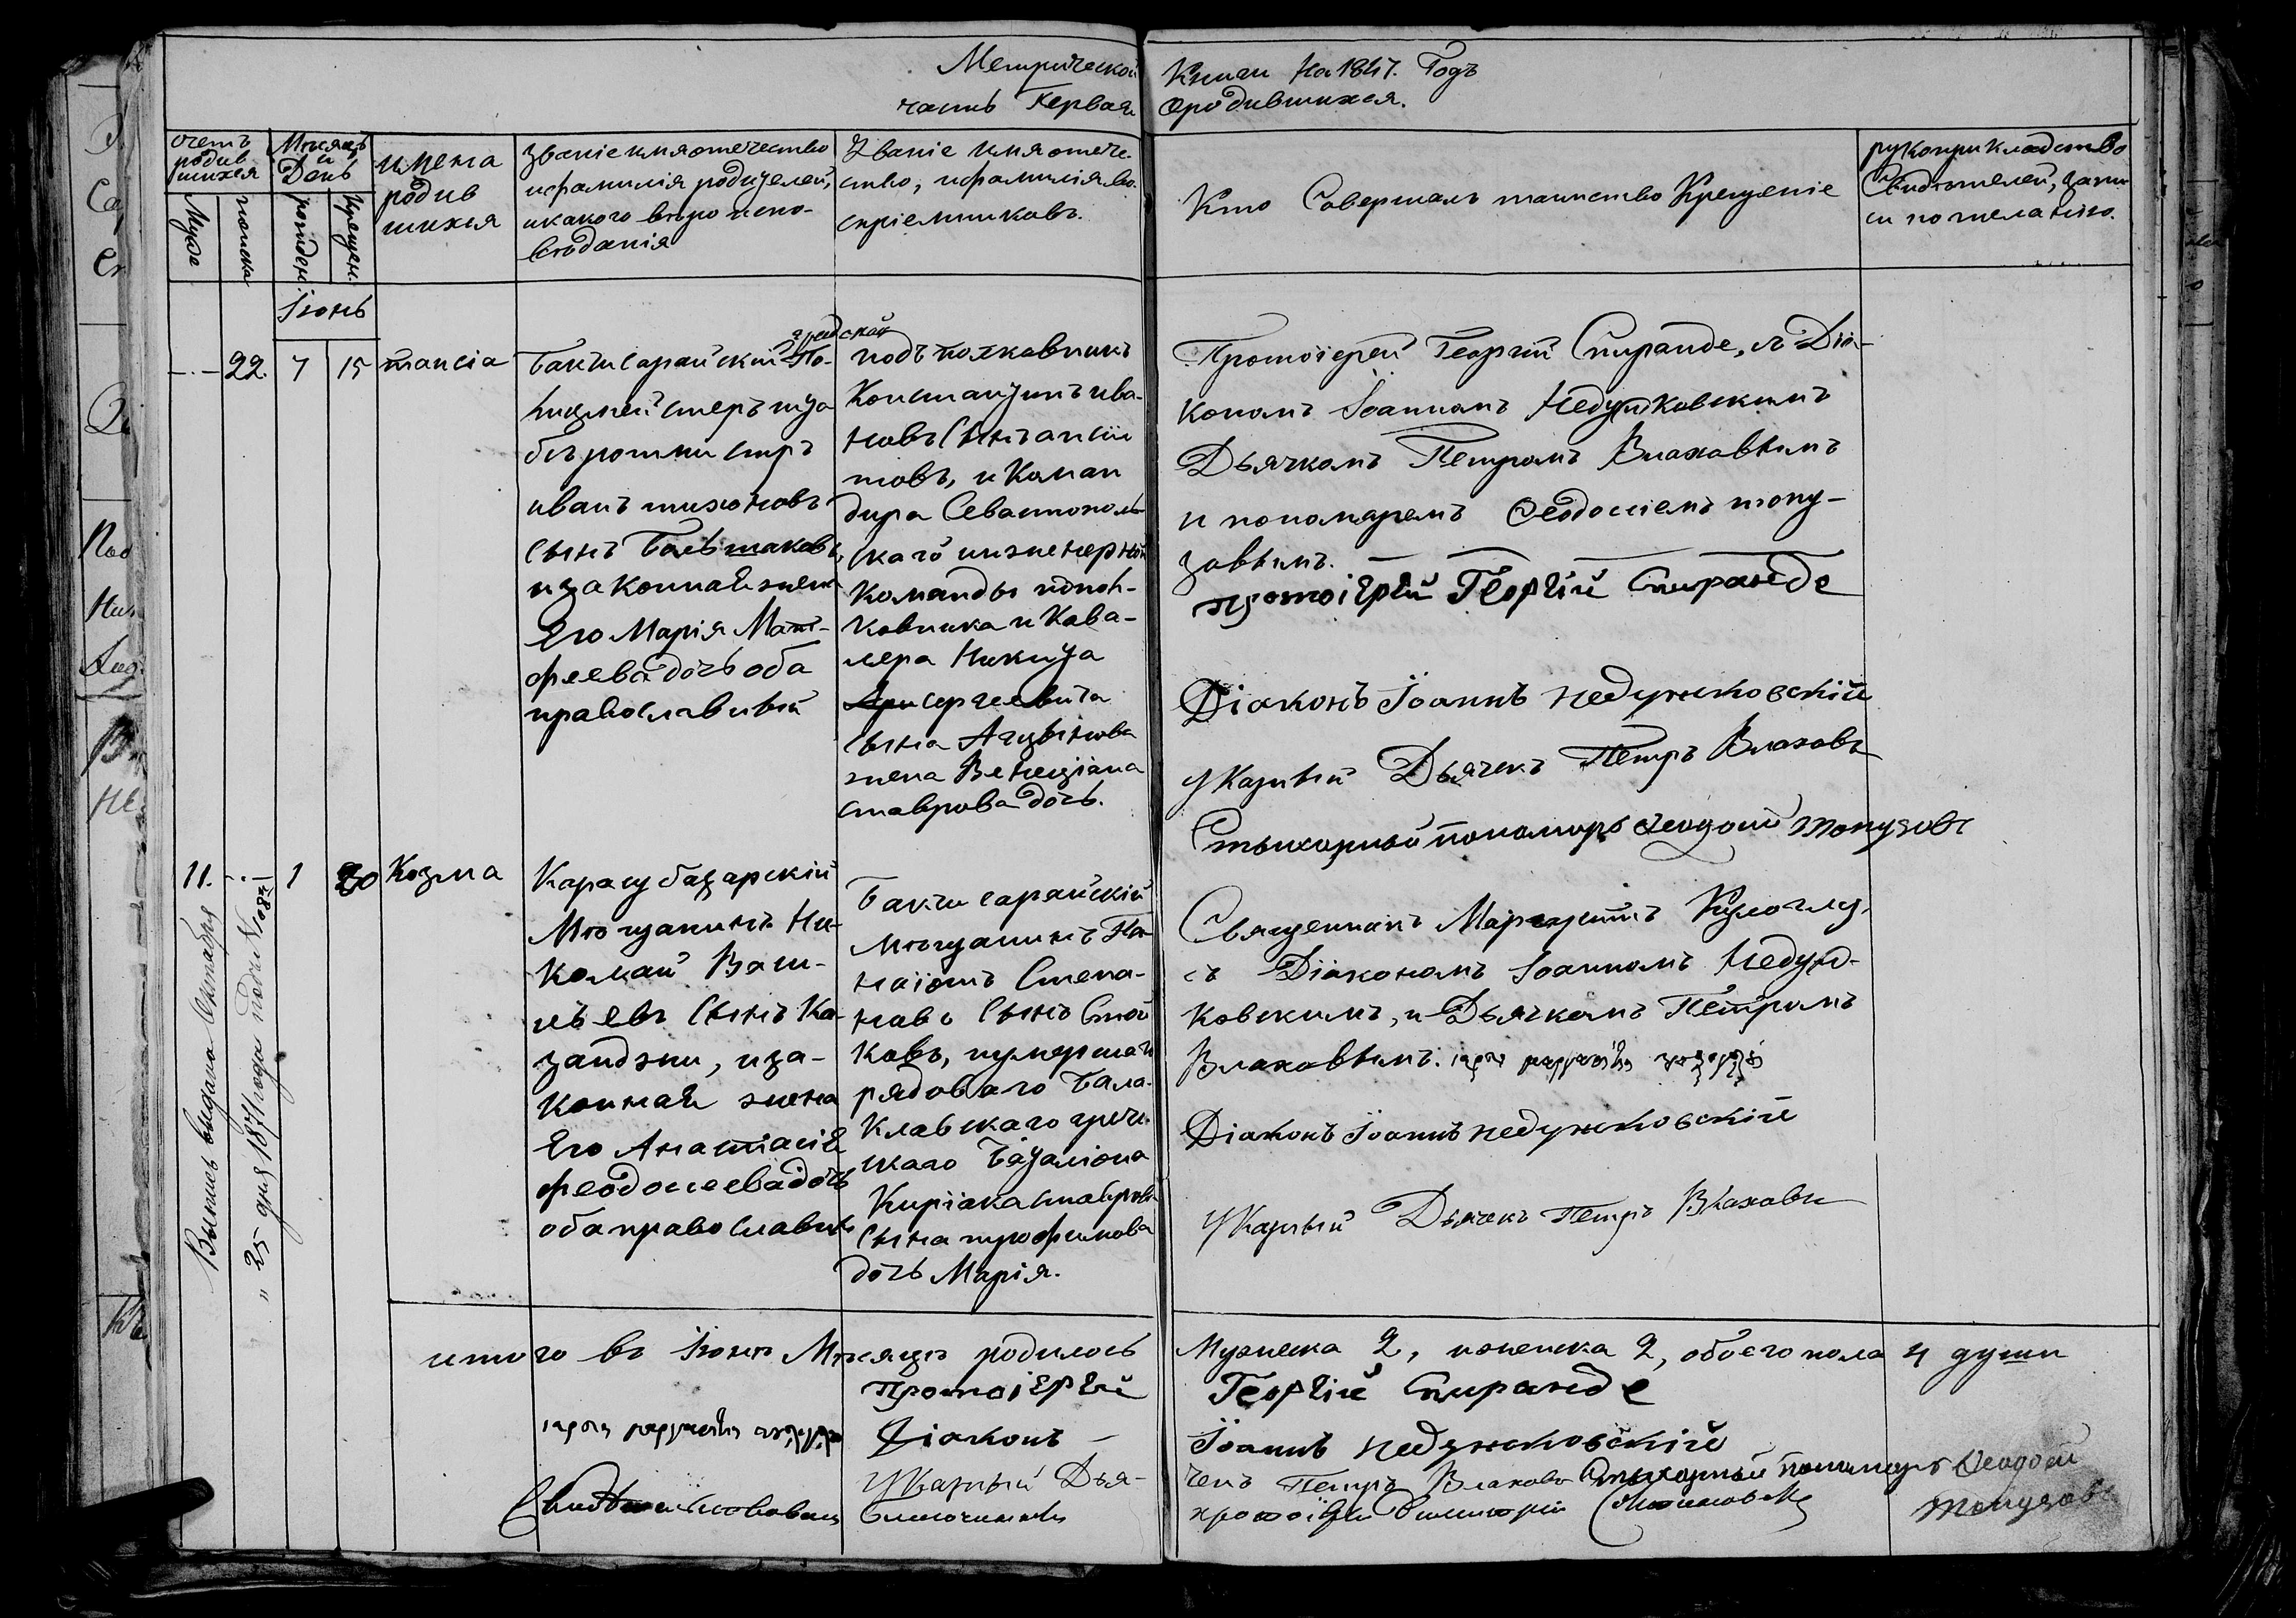 Метрической Книги На 1847. Годъ
часть Первая ородившихся.
счетъ родив шихся
Мѣсяцъ и День
имена родив шихся
Званіе имя отечество
ифамилія родителей,
икакого вѣро испо-
вѣданія
Званіе имя отече-
ство, ифамилія во-
спріемниковъ.
Кто Совершалъ таинство Крещеніе
рукоприкладство
Свидѣтелей, запи
си по желанію.
Мужс
женска
рожден.
крещен.
Іюнь
22.
7
15
таисіа
Бакчисарайский
иванъ тихоновъ
сынъ
изаконная жена
Его Марія Мат-
феева дочь оба
православный
подъ полковникъ
Константинъ ива-
новъ Сынъ
товъ, и Коман
дира Севастополь
скаго инженерной
Команды подпол-
ковника и Кава-
лера Никита
сергеевича
сына
жена Венеціана
ставрова дочь.
Протоіерей Георгій Спиранде, съ Діа-
кономъ Іоанномъ Недушковскимъ
Дьячкомъ Петромъ Влаховымъ
и пономаремъ Ѳеодосіемъ топу-
зовымъ.
протоіерей Георгій Спиранде
Діаконъ Іоаннъ недужковскій
Указный Дьячекъ Петръ Влаховъ
Стыхарный пономарь Ѳеодосій топузовъ
11.
1
20
Козма
Карасубазарскій
Мѣщанинъ Ни-
колай Васи-
льевъ Сынъ Ка-
занджи, иза-
конная жена
Его Анастасіе
феодосеева дочь
оба православны
Бакчисарайскій
мѣщанинъ Па-
наіотъ Степа-
новъ Сынъ Стой
ковъ, иумершаго
рядоваго Бала-
клавскаго грече-
скаго Баталіона
Киріака ставрова
сына трофимова
дочь Марія.
Священникъ
съ Діакономъ Іоанномъ Недуж-
ковскимъ, и Дьячкомъ Петромъ
Влаховымъ.
Діаконъ Іоаннъ недужковскій
Указный Дьячекъ Петръ Влаховъ
Выпись выдана Октября
" 25 дня 1871 года подъ №
итого въ Іюнѣ Мѣсяцѣ родилось Мужеска 2, иженска 2, обоего пола 4 души
протоіерей Георгій Спиранде
Діаконъ – Іоаннъ недужковскій
Указный Дья- чекъ Петръ Влаховъ Стыхарный пономарь Ѳеодосій
топузовъ
Свидѣтельствовалъ Благочинный протоіерей